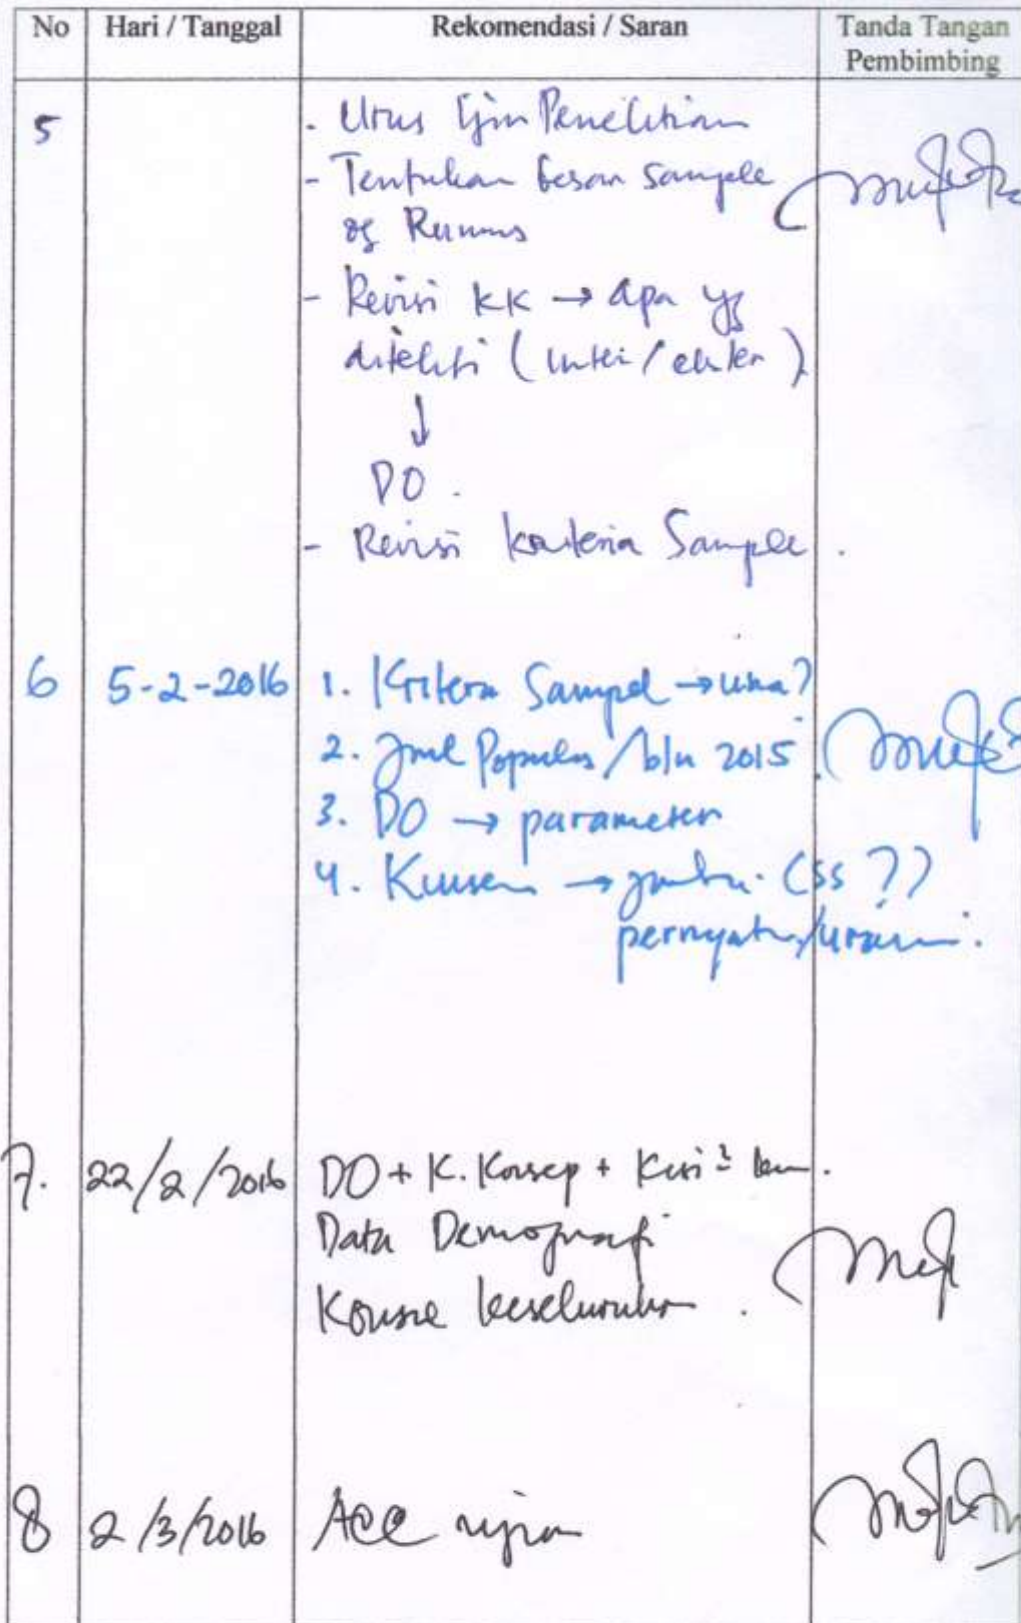 No Hari / Tanggal Rekomendasi / Saran Tanda Tangan
Pembimbing
5 - Urus Ijin Penelitian
- Tentukan besar sample
dg Rumus
- Revisi KK → apa yg
diteliti (inter/ekster)
↓
DO.
- Revisi kriteria Sample.
6 5-2-2016 1. Kriteria Sampel → usia?
2. Jml Populasi/bln 2015
3. DO → parameter
4. → (SS ??)
7. 22/2/2016 DO + K. Konsep + Kisi²
Data Demografi
keseluruhan.
8 2/3/2016 ACC ujian